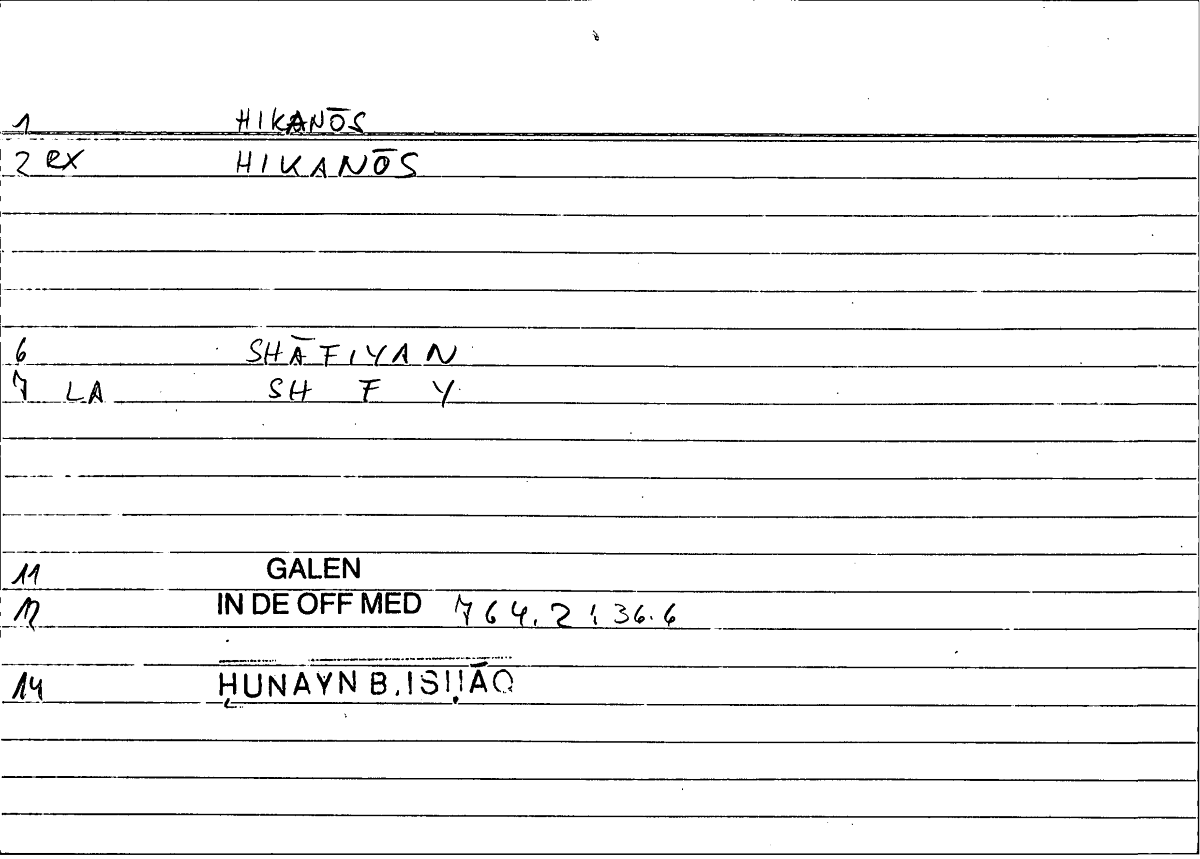 1 HIKANŌS
2 RX HIKANŌS
6 SHĀFIYAN
7 LA SH F Y
11 GALEN
12 IN DE OFF MED 764.2 : 36.6
14 ḤUNAYN B. ISḤĀQ